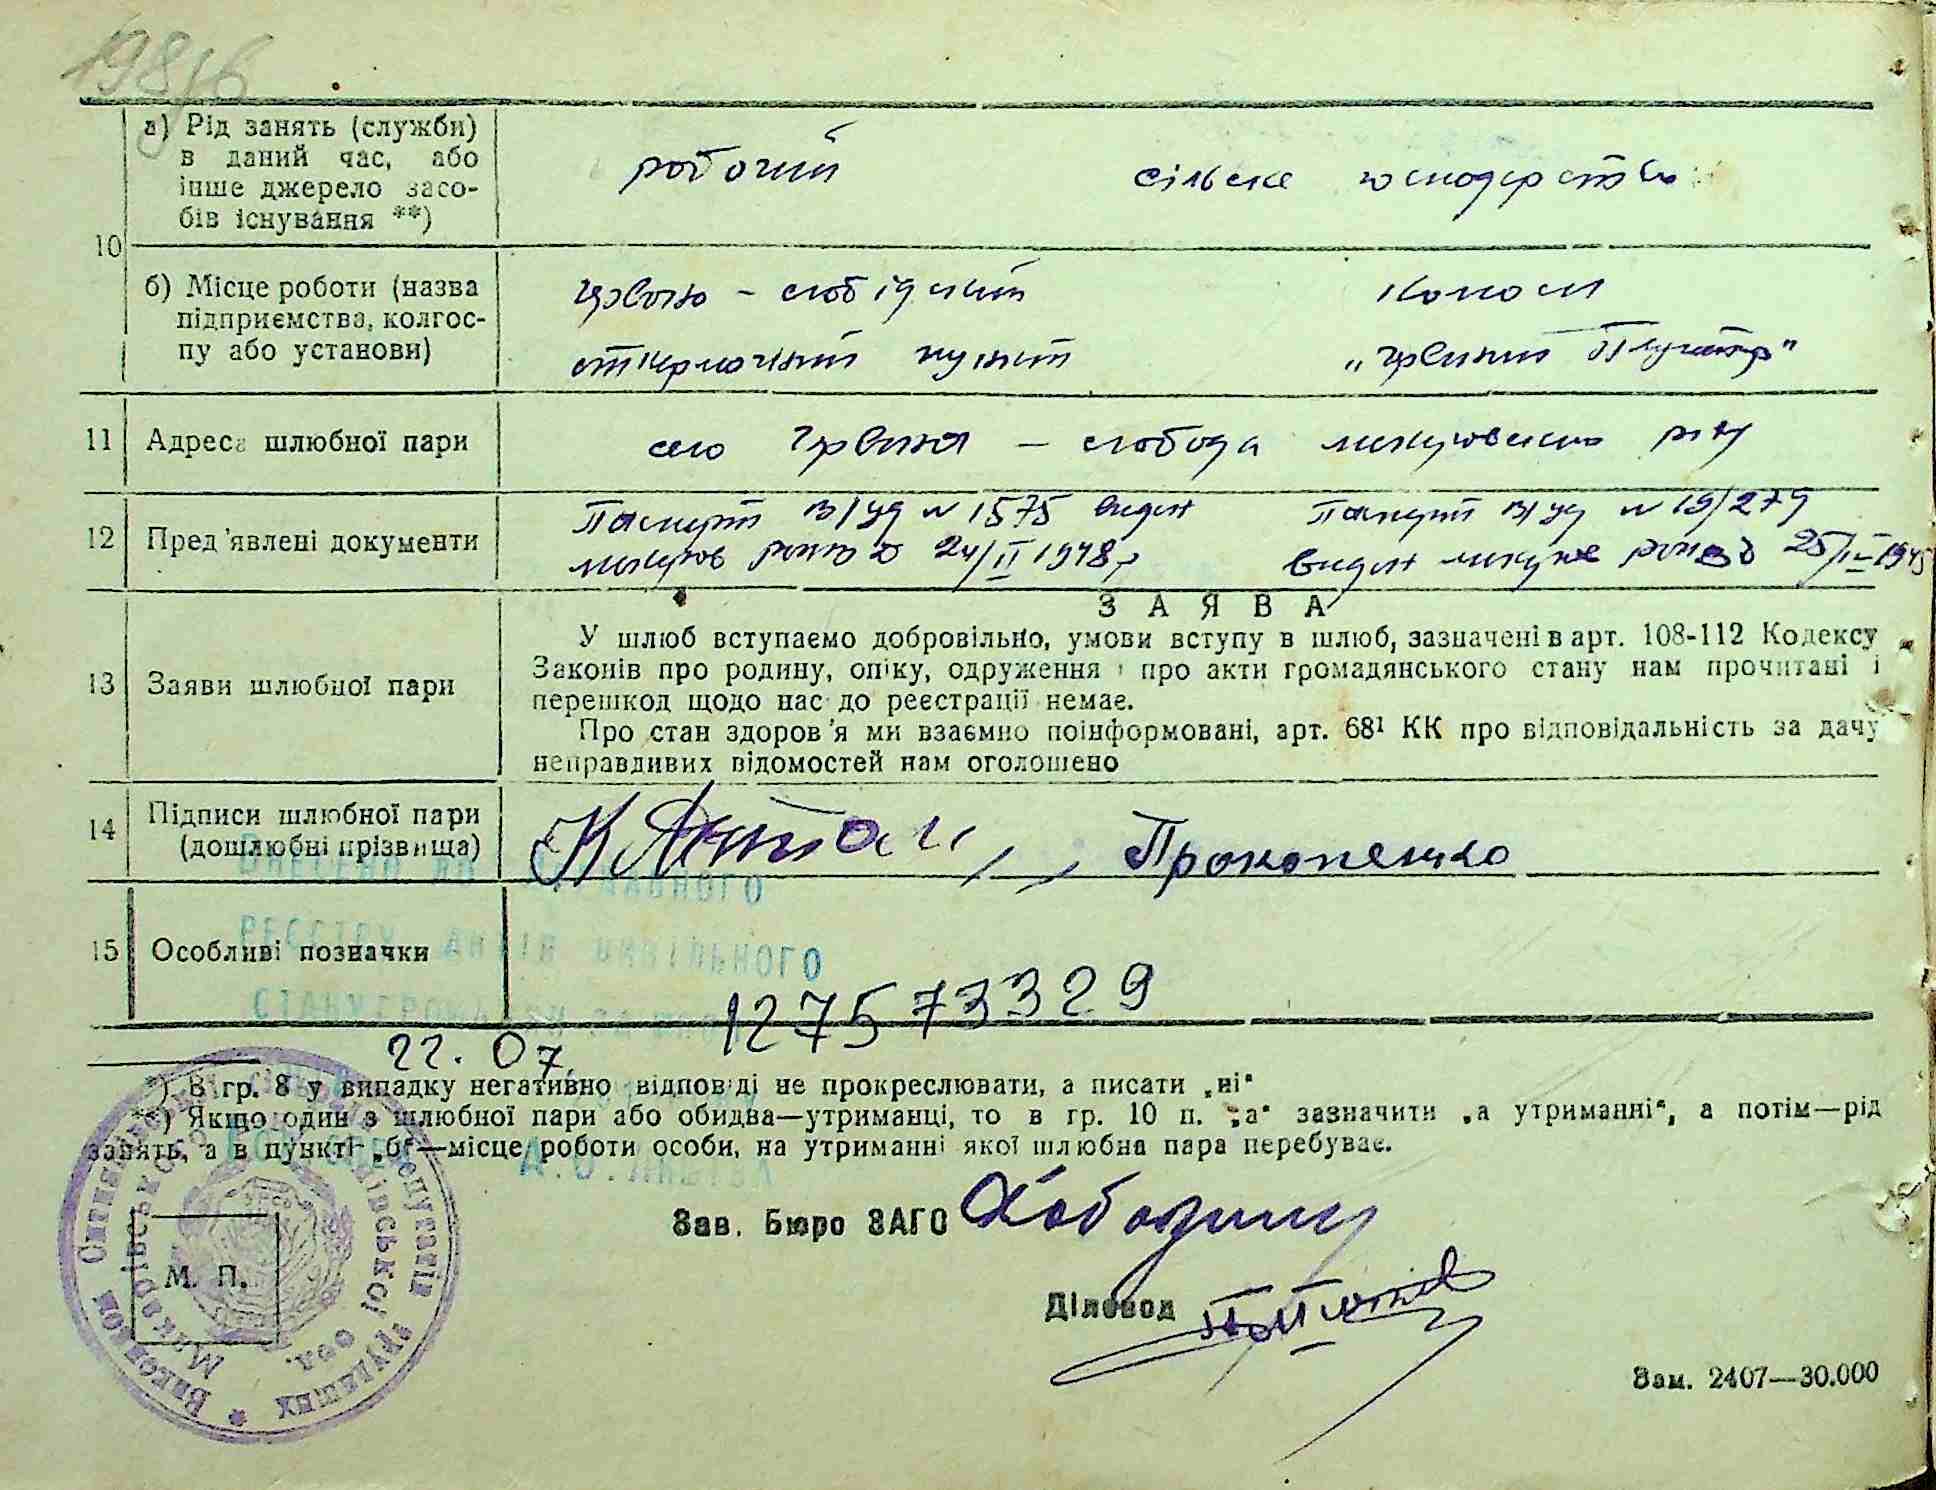 198/6
10
а) Рід занять (служби)
в даний час, або
інше джерело засо-
бів існування **)
робочий
сільске господарство
б) Місце роботи (назва
підприємства, колгос-
пу або установи)
червоно-слобідський
пункт
колгосп
„Червоний
11
Адреса шлюбної пари
село Червона - слобода макаровського р-ну
12
Пред'явлені документи
Паспорт № 1575 видан
24/II 1948р
Паспорт № 19/279
видан 25/
13
Заяви шлюбної пари
ЗАЯВА
У шлюб вступаємо добровільно, умови вступу в шлюб, зазначені в арт. 108-112 Кодексу
Законів про родину, опіку, одруження і про акти громадянського стану нам прочитані і
перешкод щодо нас до реєстрації немає.
Про стан здоров'я ми взаємно поінформовані, арт. 68¹ КК про відповідальність за дачу
неправдивих відомостей нам оголошено
14
Підписи шлюбної пари
(дошлюбні прізвища)
Прокопенко
ВНЕСЕНО ДО ДЕРЖАВНОГО
РЕЄСТРУ АКТІВ ЦИВІЛЬНОГО
СТАНУ ГРОМАДЯН ЗА №
15
Особливі позначки
127573329
22.07.
*) В гр. 8 у випадку негативно відповіді не прокреслювати, а писати „ні“
**) Якщо один з шлюбної пари або обидва—утриманці, то в гр. 10 п. „а“ зазначити „а утриманні“, а потім—рід
занять, а в пункті „б“—місце роботи особи, на утриманні якої шлюбна пара перебуває.
Зав. Бюро ЗАГС
Діловод
М. П.
Зам. 2407—30.000